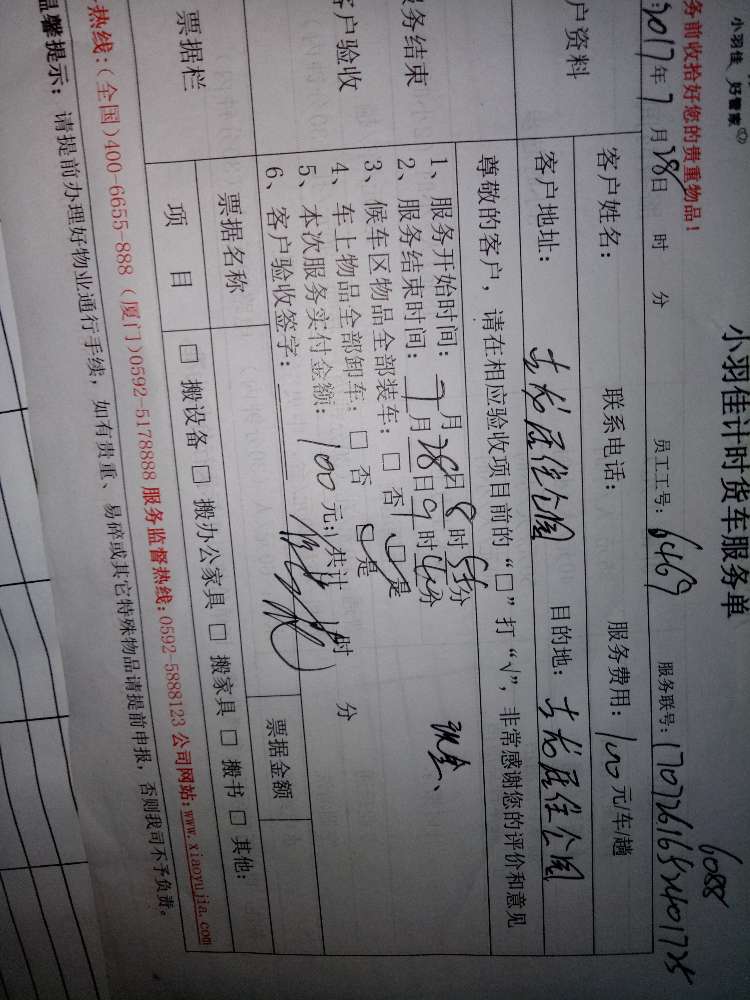 小羽佳 好管家
小羽佳计时货车服务单
6088
务前收拾好您的贵重物品！
2017年7月28日 时 分 员工工号：6469 服务联号：
户资料 客户姓名： 联系电话： 服务费用：100元/车/趟
客户地址： 目的地：
尊敬的客户，请在相应验收项目前的“□”打“√”，非常感谢您的评价和意见
服务结束
客户验收
1、服务开始时间：7月28日8时55分
2、服务结束时间：7月28日9时40分
现金、
3、候车区物品全部装车：□ 否 □ 是
4、车上物品全部卸车：□ 否 □ 是
5、本次服务实付金额：100元；共计 时 分
6、客户验收签字：
票据栏 票据名称 票据金额
项 目 □ 搬设备 □ 搬办公家具 □ 搬家具 □ 搬书 □ 其他:
热线:(全国)400-6655-888 (厦门)0592-5178888 服务监督热线:0592-5888123 公司网站:www.xiaoyujia.com
温馨提示：请提前办理好物业通行手续，如有贵重、易碎或其它特殊物品请提前申报，否则我司不予负责。